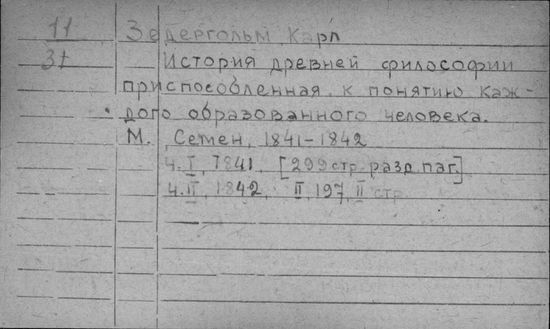 11 Зедергольм Карл
31 История древней философии
приспособленная к понятию каж-
дого образованного человека.
М. Семен, 1841-1842
Ч. I, 1841, [299 стр. разд. паг.]
Ч. II, 1842. II, 197, II стр.